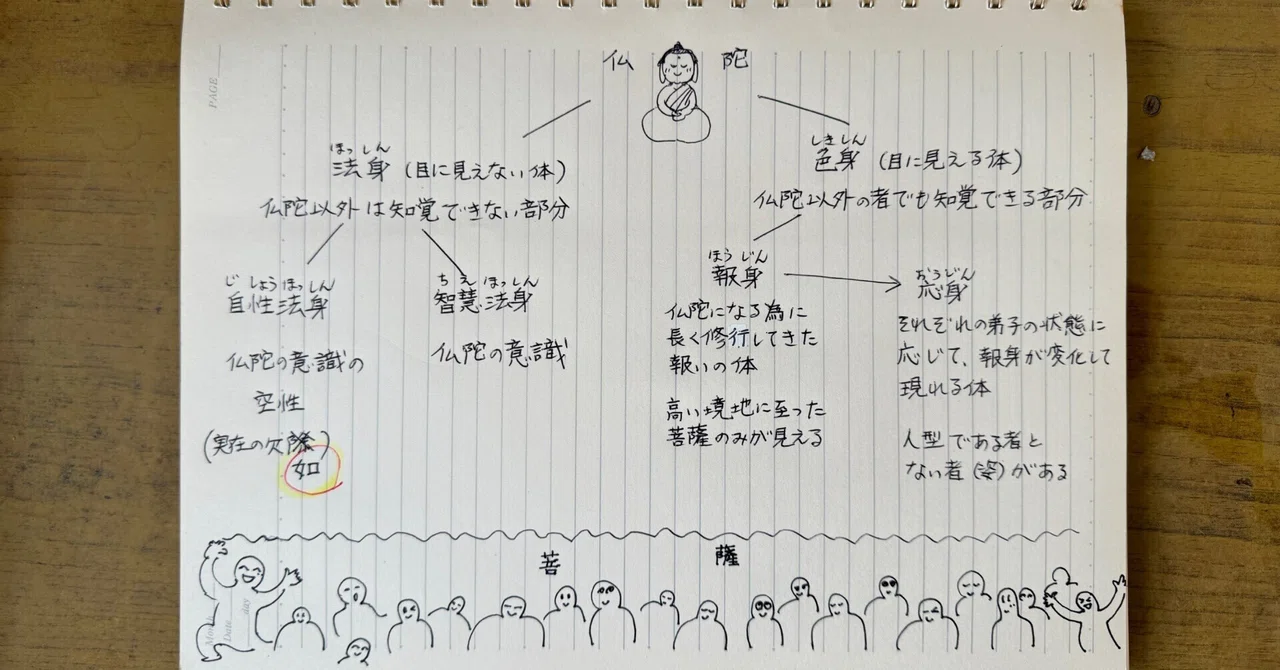 仏 陀
ほっしん
法身 (目に見えない体)
仏陀以外は知覚できない部分
じしょうほっしん
自性法身
仏陀の意識の
空性
(実在の欠除)
如
ちえほっしん
智慧法身
仏陀の意識
しきしん
色身 (目に見える体)
仏陀以外の者でも知覚できる部分
ほうじん
報身
仏陀になる為に
長く修行してきた
報いの体
高い境地に至った
菩薩のみが見える
おうじん
応身
それぞれの弟子の状態に
応じて、報身が変化して
現れる体
人型である者と
ない者(姿)がある
菩 薩
PAGE
Date
day